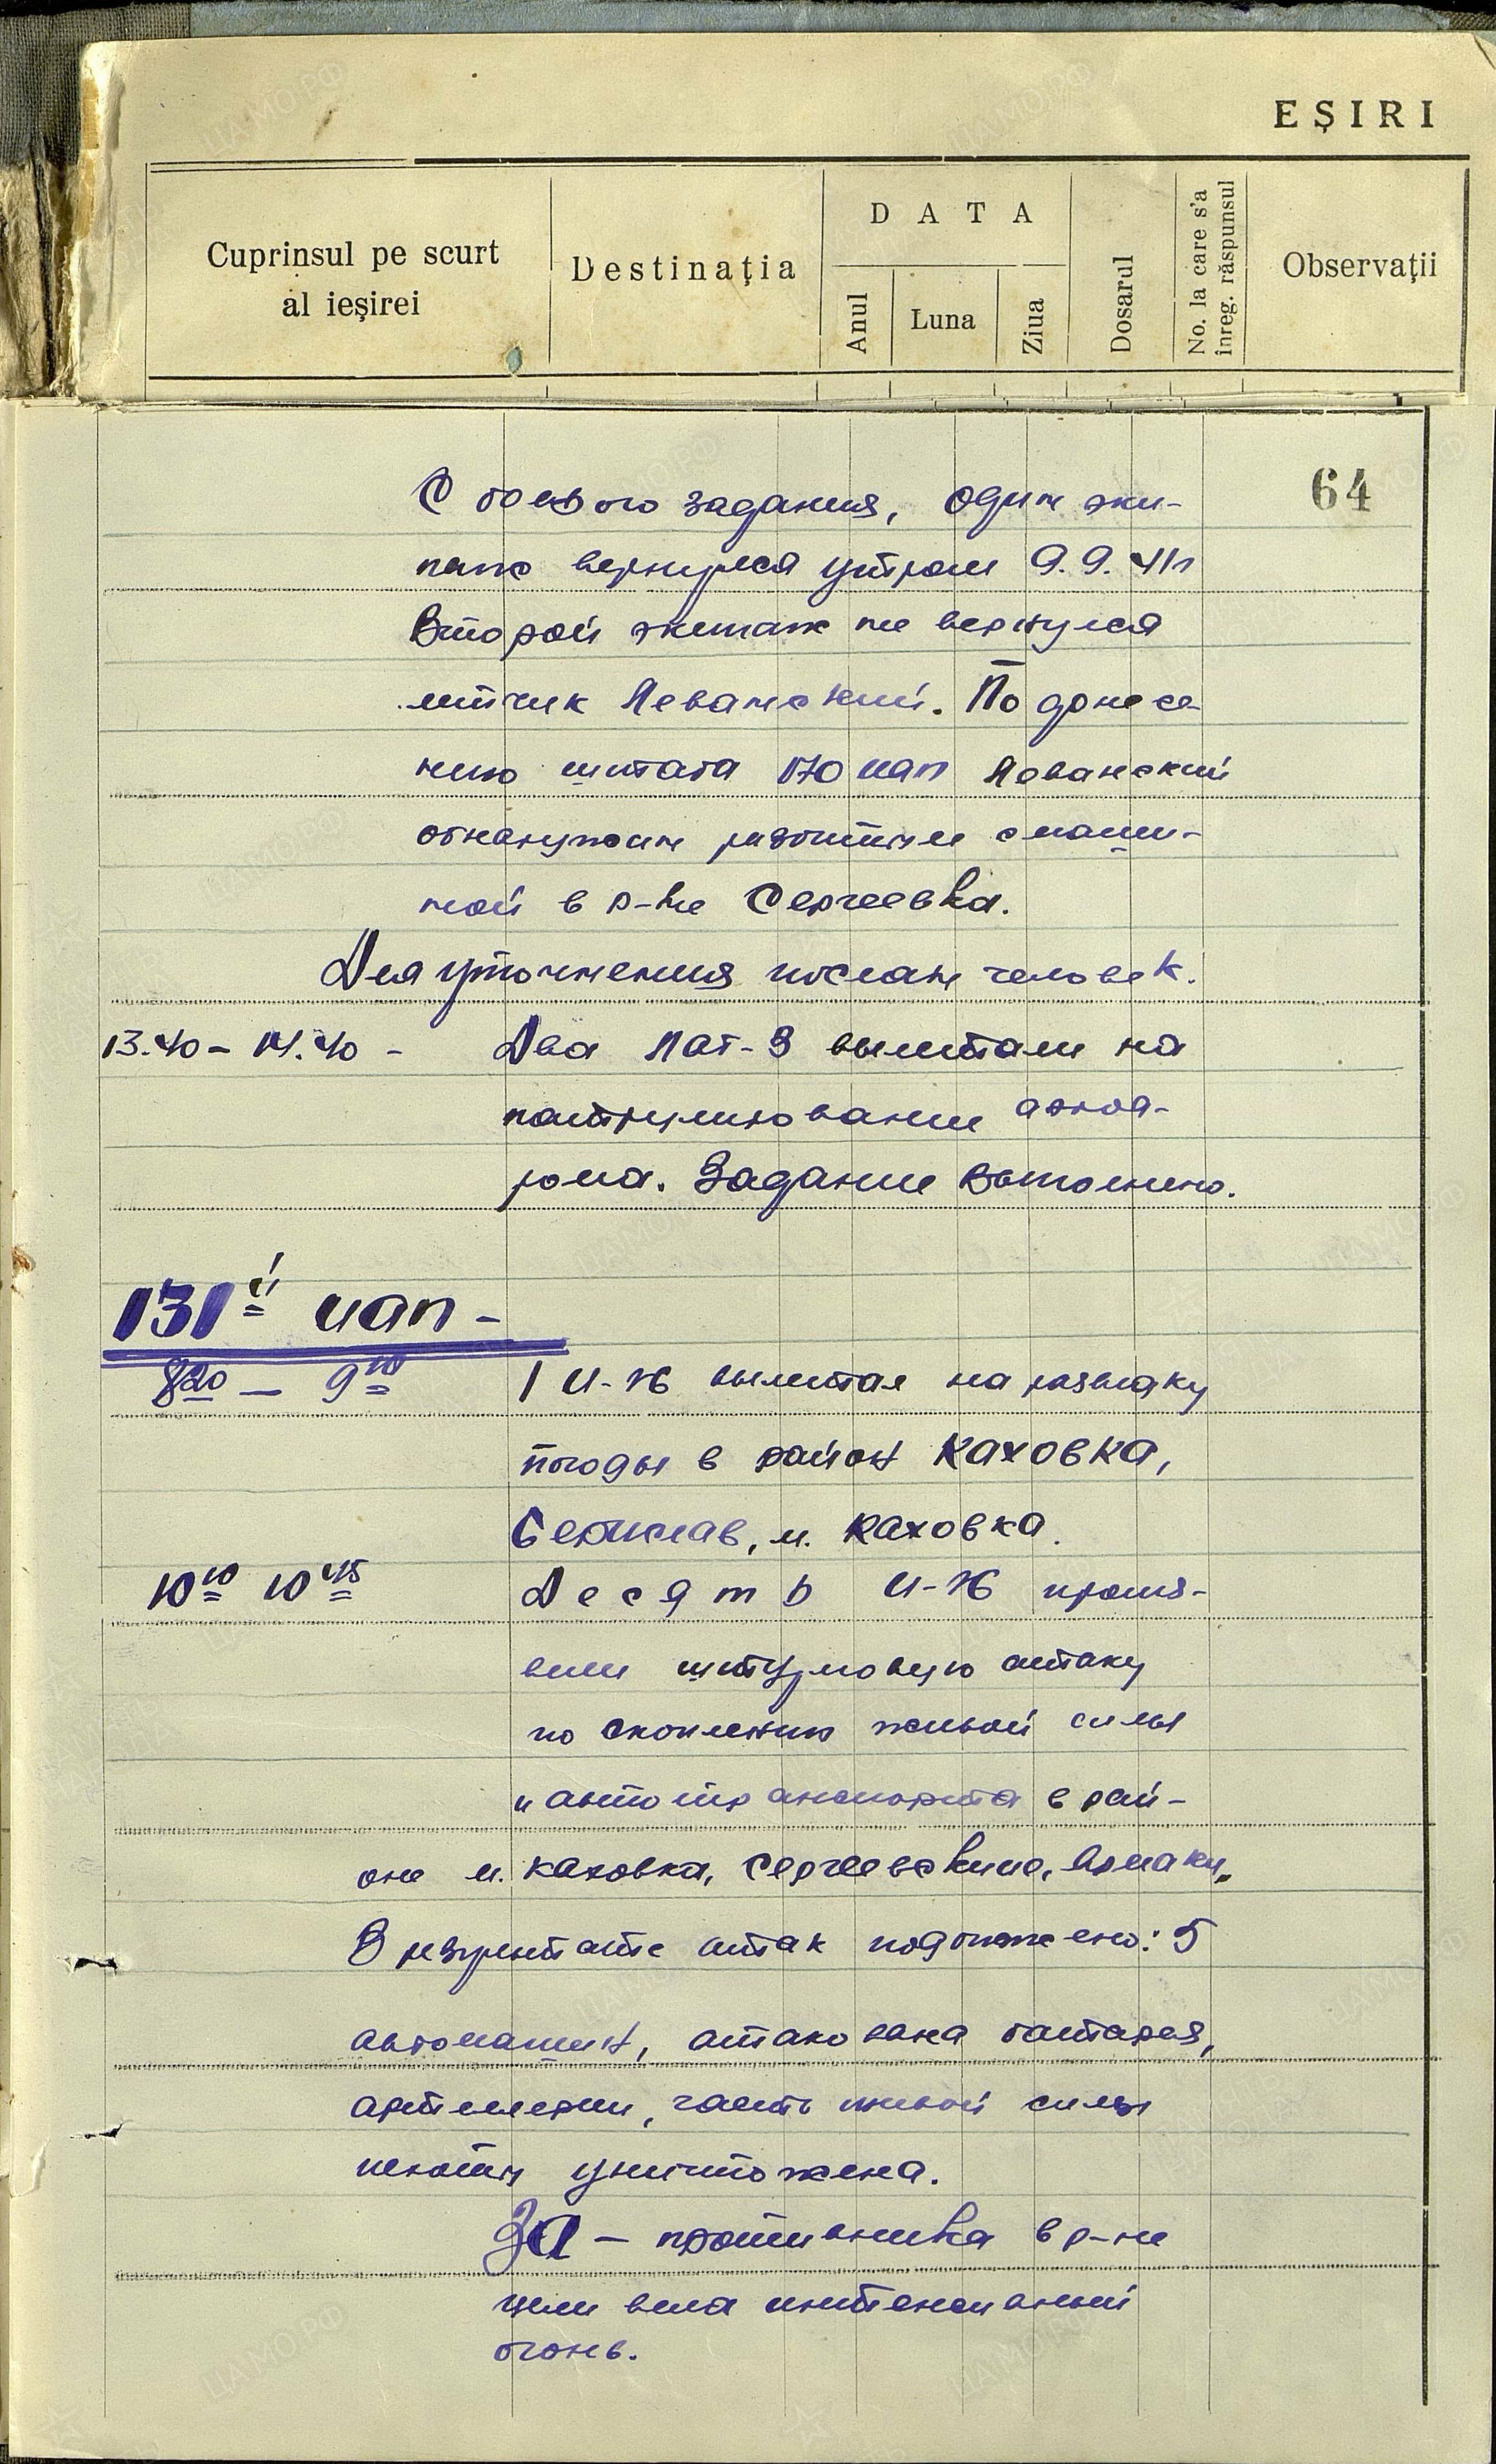 EȘIRI
Cuprinsul pe scurt
al ieșirei
Destinația
DATA
Anul
Luna
Ziua
Dosarul
No. la care s'a
înreg. răspunsul
Observații
64
С боевого задания, один эки-
паж вернулся утром 9.9.41г
Второй экипаж не вернулся
летчик Леванский. По донесе-
нию штаба 170 иап Леванский
обнаружен разбитым с маши-
ной в р-не Сергеевка.
Для уточнения послан человек.
13.40 – 14.40 – Два Лаг-3 вылетали на
патрулирование аэрод-
рома. Задание выполнено.
131й иап –
8 20 – 9 10 1 И-16 вылетал на разведку
погоды в район Каховка,
Берислав, м. Каховка.
10 10 10 45 Десять И-16 произ-
вели штурмовую атаку
по скоплению живой силы
и автотранспорта в рай-
оне м. Каховка, Сергеевские,
В результате атак подожжено: 5
автомашин, атакована батарея,
артиллерии, часть живой силы
пехоты уничтожена.
ЗА – противника в р-не
цели вела интенсивный
огонь.